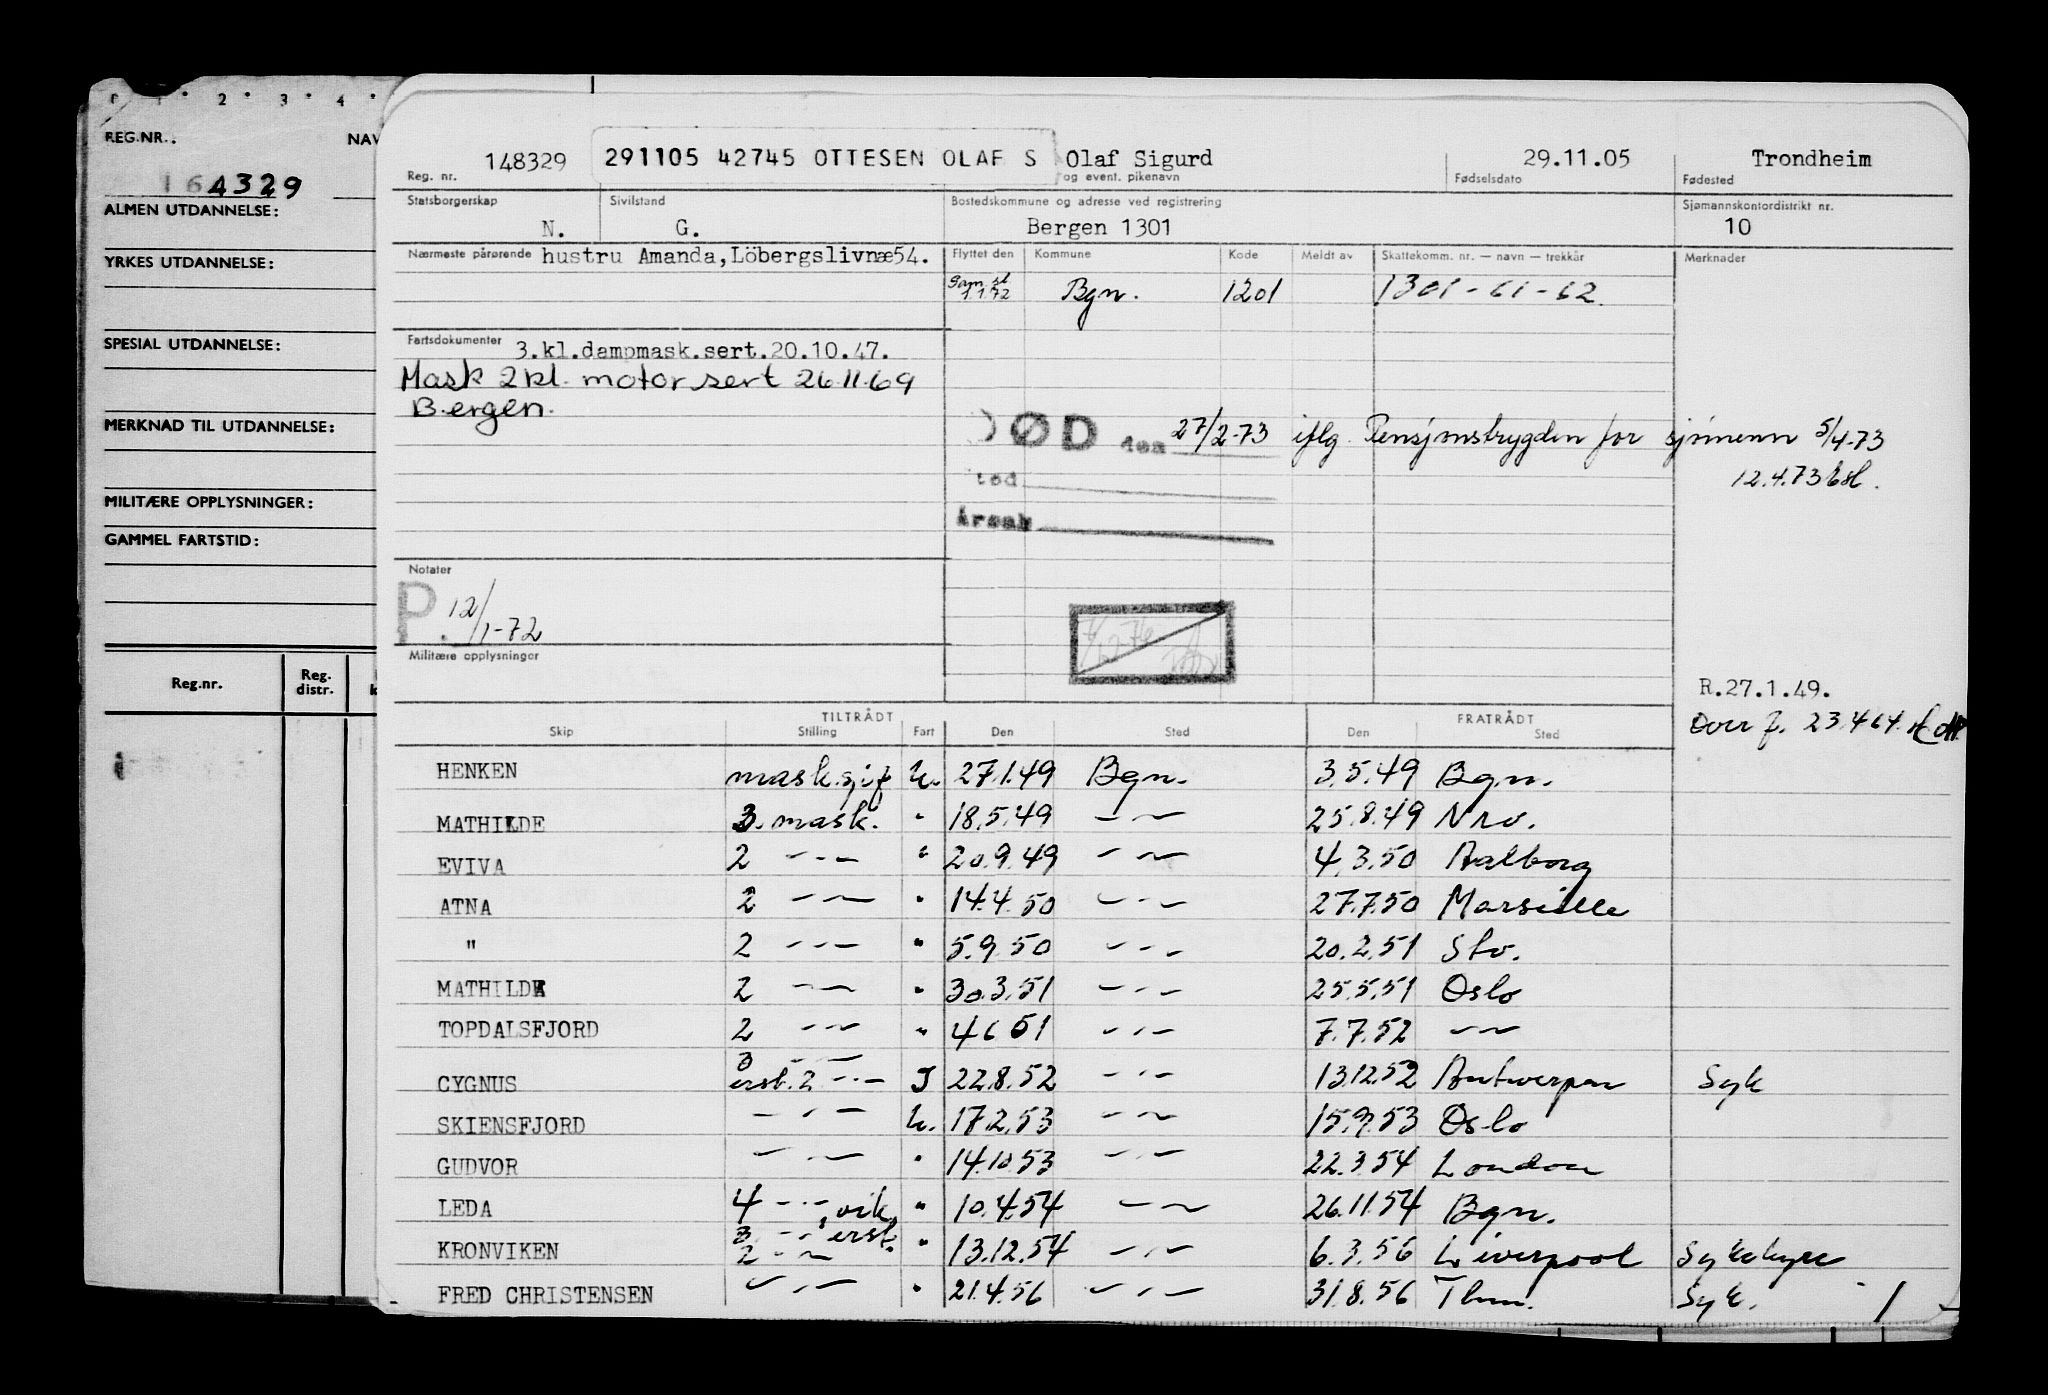 0 1 2 3 4
REG.NR.. NAV
164329
ALMEN UTDANNELSE:
YRKES UTDANNELSE:
SPESIAL UTDANNELSE:
MERKNAD TIL UTDANNELSE:
MILITÆRE OPPLYSNINGER:
GAMMEL FARTSTID:
Reg.nr. Reg. distr.
148329 291105 42745 OTTESEN OLAF S Olaf Sigurd 29.11.05 Trondheim
Reg. nr. og event. pikenavn Fødselsdato Fødested
Statsborgerskap Sivilstand Bostedskommune og adresse ved registrering Sjømannskontordistrikt nr.
N. G. Bergen 1301 10
Nærmeste pårørende hustru Amanda,Löbergslivnæ54. Flyttet den Kommune Kode Meldt av Skattekomm. nr. — navn — trekkår Merknader
1.1.72 Bgn. 1201 1301-61-62.
Fartsdokumenter 3.kl.dampmask.sert.20.10.47.
Mask 2kl. motor sert 26.11.69
Bergen.
DØD den 27/2-73 iflg. Pensjonstrygden for sjømenn 5/4-73
sted 12.4.73
Årsak
Notater
P. 12/1-72
Militære opplysninger
R.27.1.49.
Over f. 23.4.64.
TILTRÅDT FRATRÅDT
Skip Stilling Fart Den Sted Den Sted
HENKEN mask.gif U. 27.1.49 Bgn. 3.5.49 Bgn.
MATHILDE 3. mask. " 18.5.49 — " — 25.8.49 Nrv.
EVIVA 2 — " — " 20.9.49 — " — 4.3.50 Aalborg
ATNA 2 — " — " 14.4.50 — " — 27.7.50 Marseille
" 2 — " — " 5.9.50 — " — 20.2.51 Stv.
MATHILDA 2 — " — " 30.3.51 — " — 25.5.51 Oslo
TOPDALSFJORD 2 — " — " 4.6.51 — " — 7.7.52 — " —
3 — " —
CYGNUS erst. 2 — " — I 22.8.52 — " — 13.12.52 Antwerpen Syk
SKIENSFJORD — " — U. 17.2.53 — " — 15.9.53 Oslo
GUDVOR — " — " 14.10.53 — " — 22.3.54 London
LEDA 4 — " — , vik. " 10.4.54 — " — 26.11.54 Bgn.
3 — " — erst.
KRONVIKEN 2 — " — " 13.12.54 — " — 6.3.56 Liverpool Sykehyre
FRED CHRISTENSEN — " — " 21.4.56 — " — 31.8.56 Thm. Syk. 1